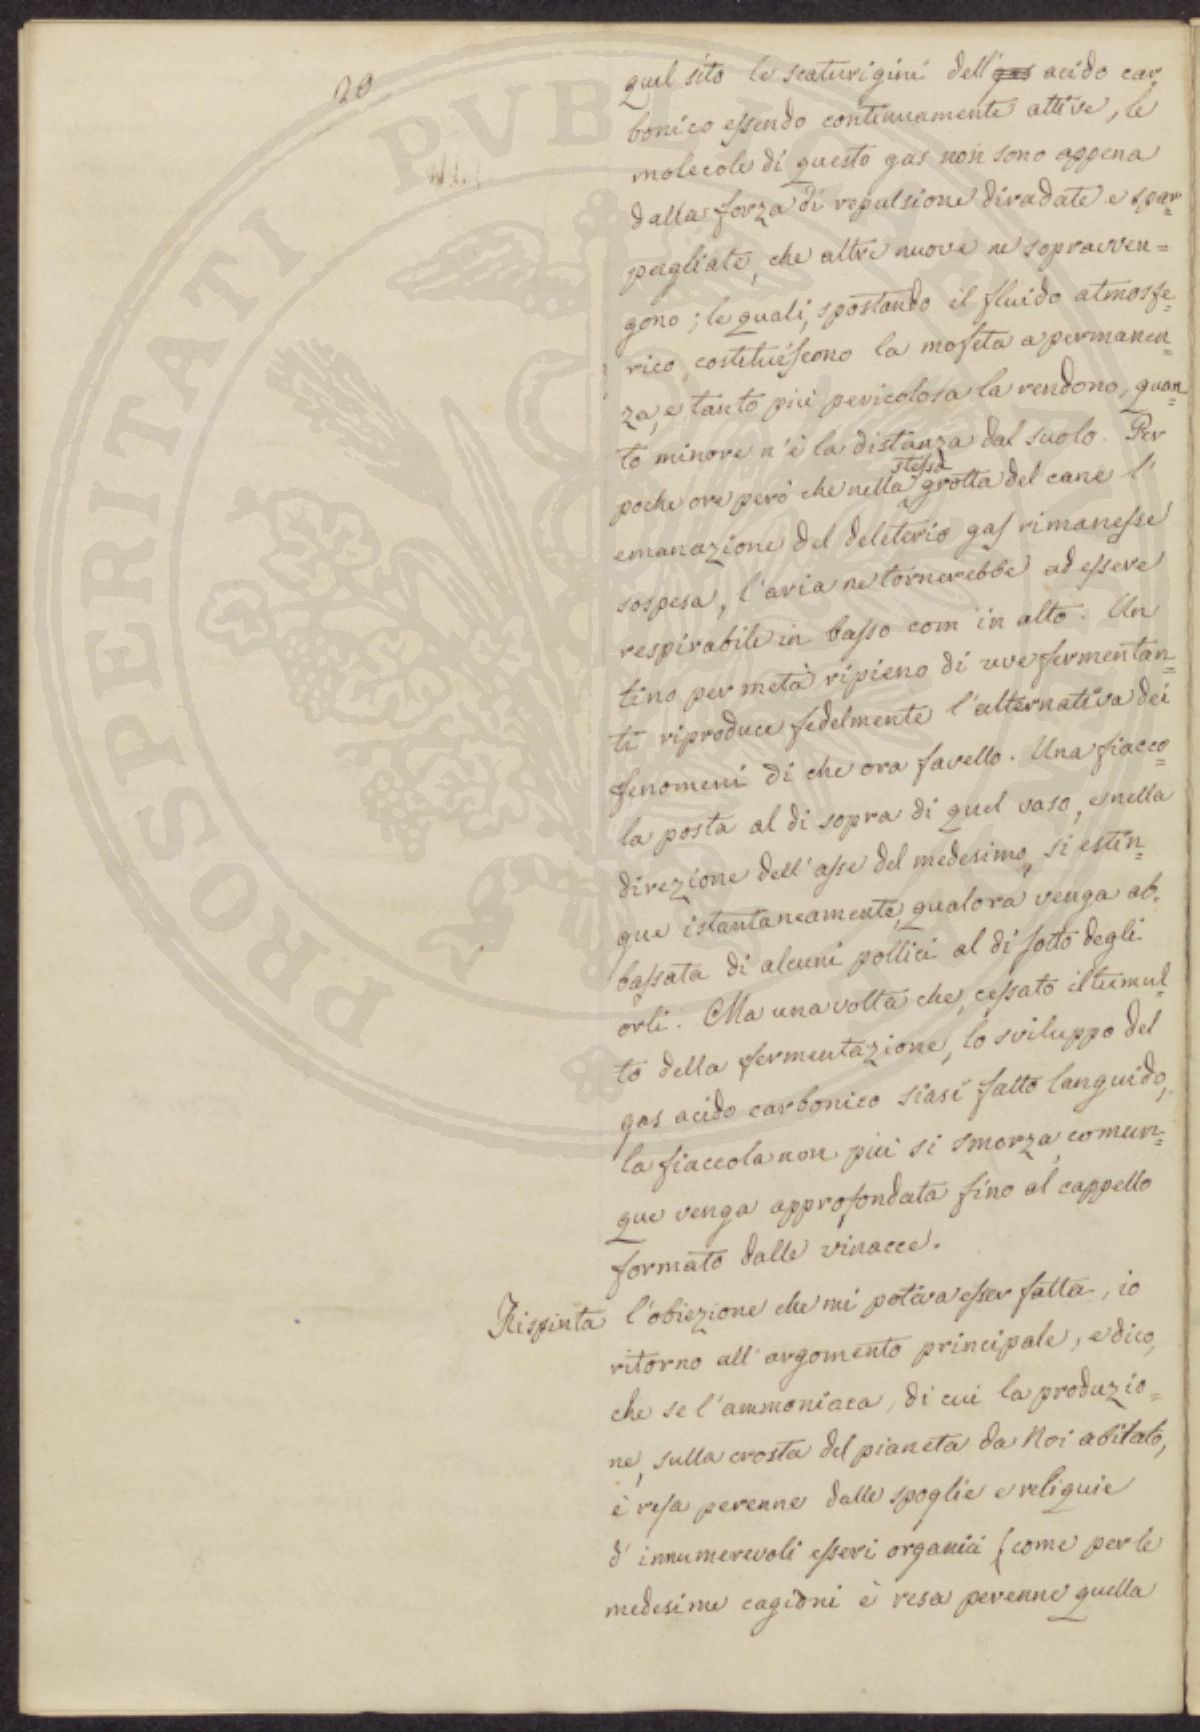 20
quel sito le scaturigini dell'gas acido car
bonico essendo continuamente attive, le
molecole di questo gas non sono appena
dalla forza di repulsione diradate e spar=
pagliate, che altre nuove ne sopravven=
gono; le quali, spostando il fluido atmosfe=
rico, costituiscono la mofeta a permanen=
za, e tanto più pericolosa la rendono, quan=
to minore n'è la distanza dal suolo. Per
poche ore però che nella stessa grotta del cane l'
emanazione del deleterio gas rimanesse
sospesa, l'aria ne tornerebbe ad essere
respirabile in basso com' in alto. Un
tino per metà ripieno di uve fermentan=
ti riproduce fedelmente l'alternativa dei
fenomeni di che ora favello. Una fiacco=
la posta al di sopra di quel vaso, e nella
direzione dell'asse del medesimo, si estin=
gue istantaneamente, qualora venga ab=
bassata di alcuni pollici al di sotto degli
orli. Ma una volta che, cessato il tumul=
to della fermentazione, lo sviluppo del
gas acido carbonico siasi fatto languido,
la fiaccola non più si smorza, comun=
que venga approfondata fino al cappello
formato dalle vinacce.
Rispinta l'obiezione che mi poteva esser fatta, io
ritorno all'argomento principale, e dico,
che se l'ammoniaca, di cui la produzio=
ne, sulla crosta del pianeta da Noi abitato,
è resa perenne dalle spoglie e reliquie
d'innumerevoli esseri organici (come per le
medesime cagioni è resa perenne quella
PROSPERITATI PVBLICAE